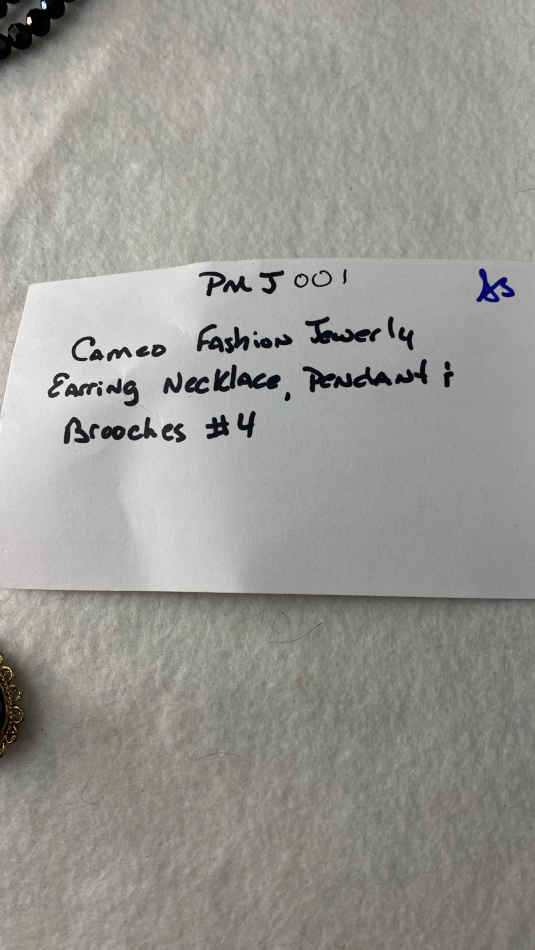 PMJ 001
Cameo Fashion Jewerly
Earring Necklace, Pendant &
Brooches #4